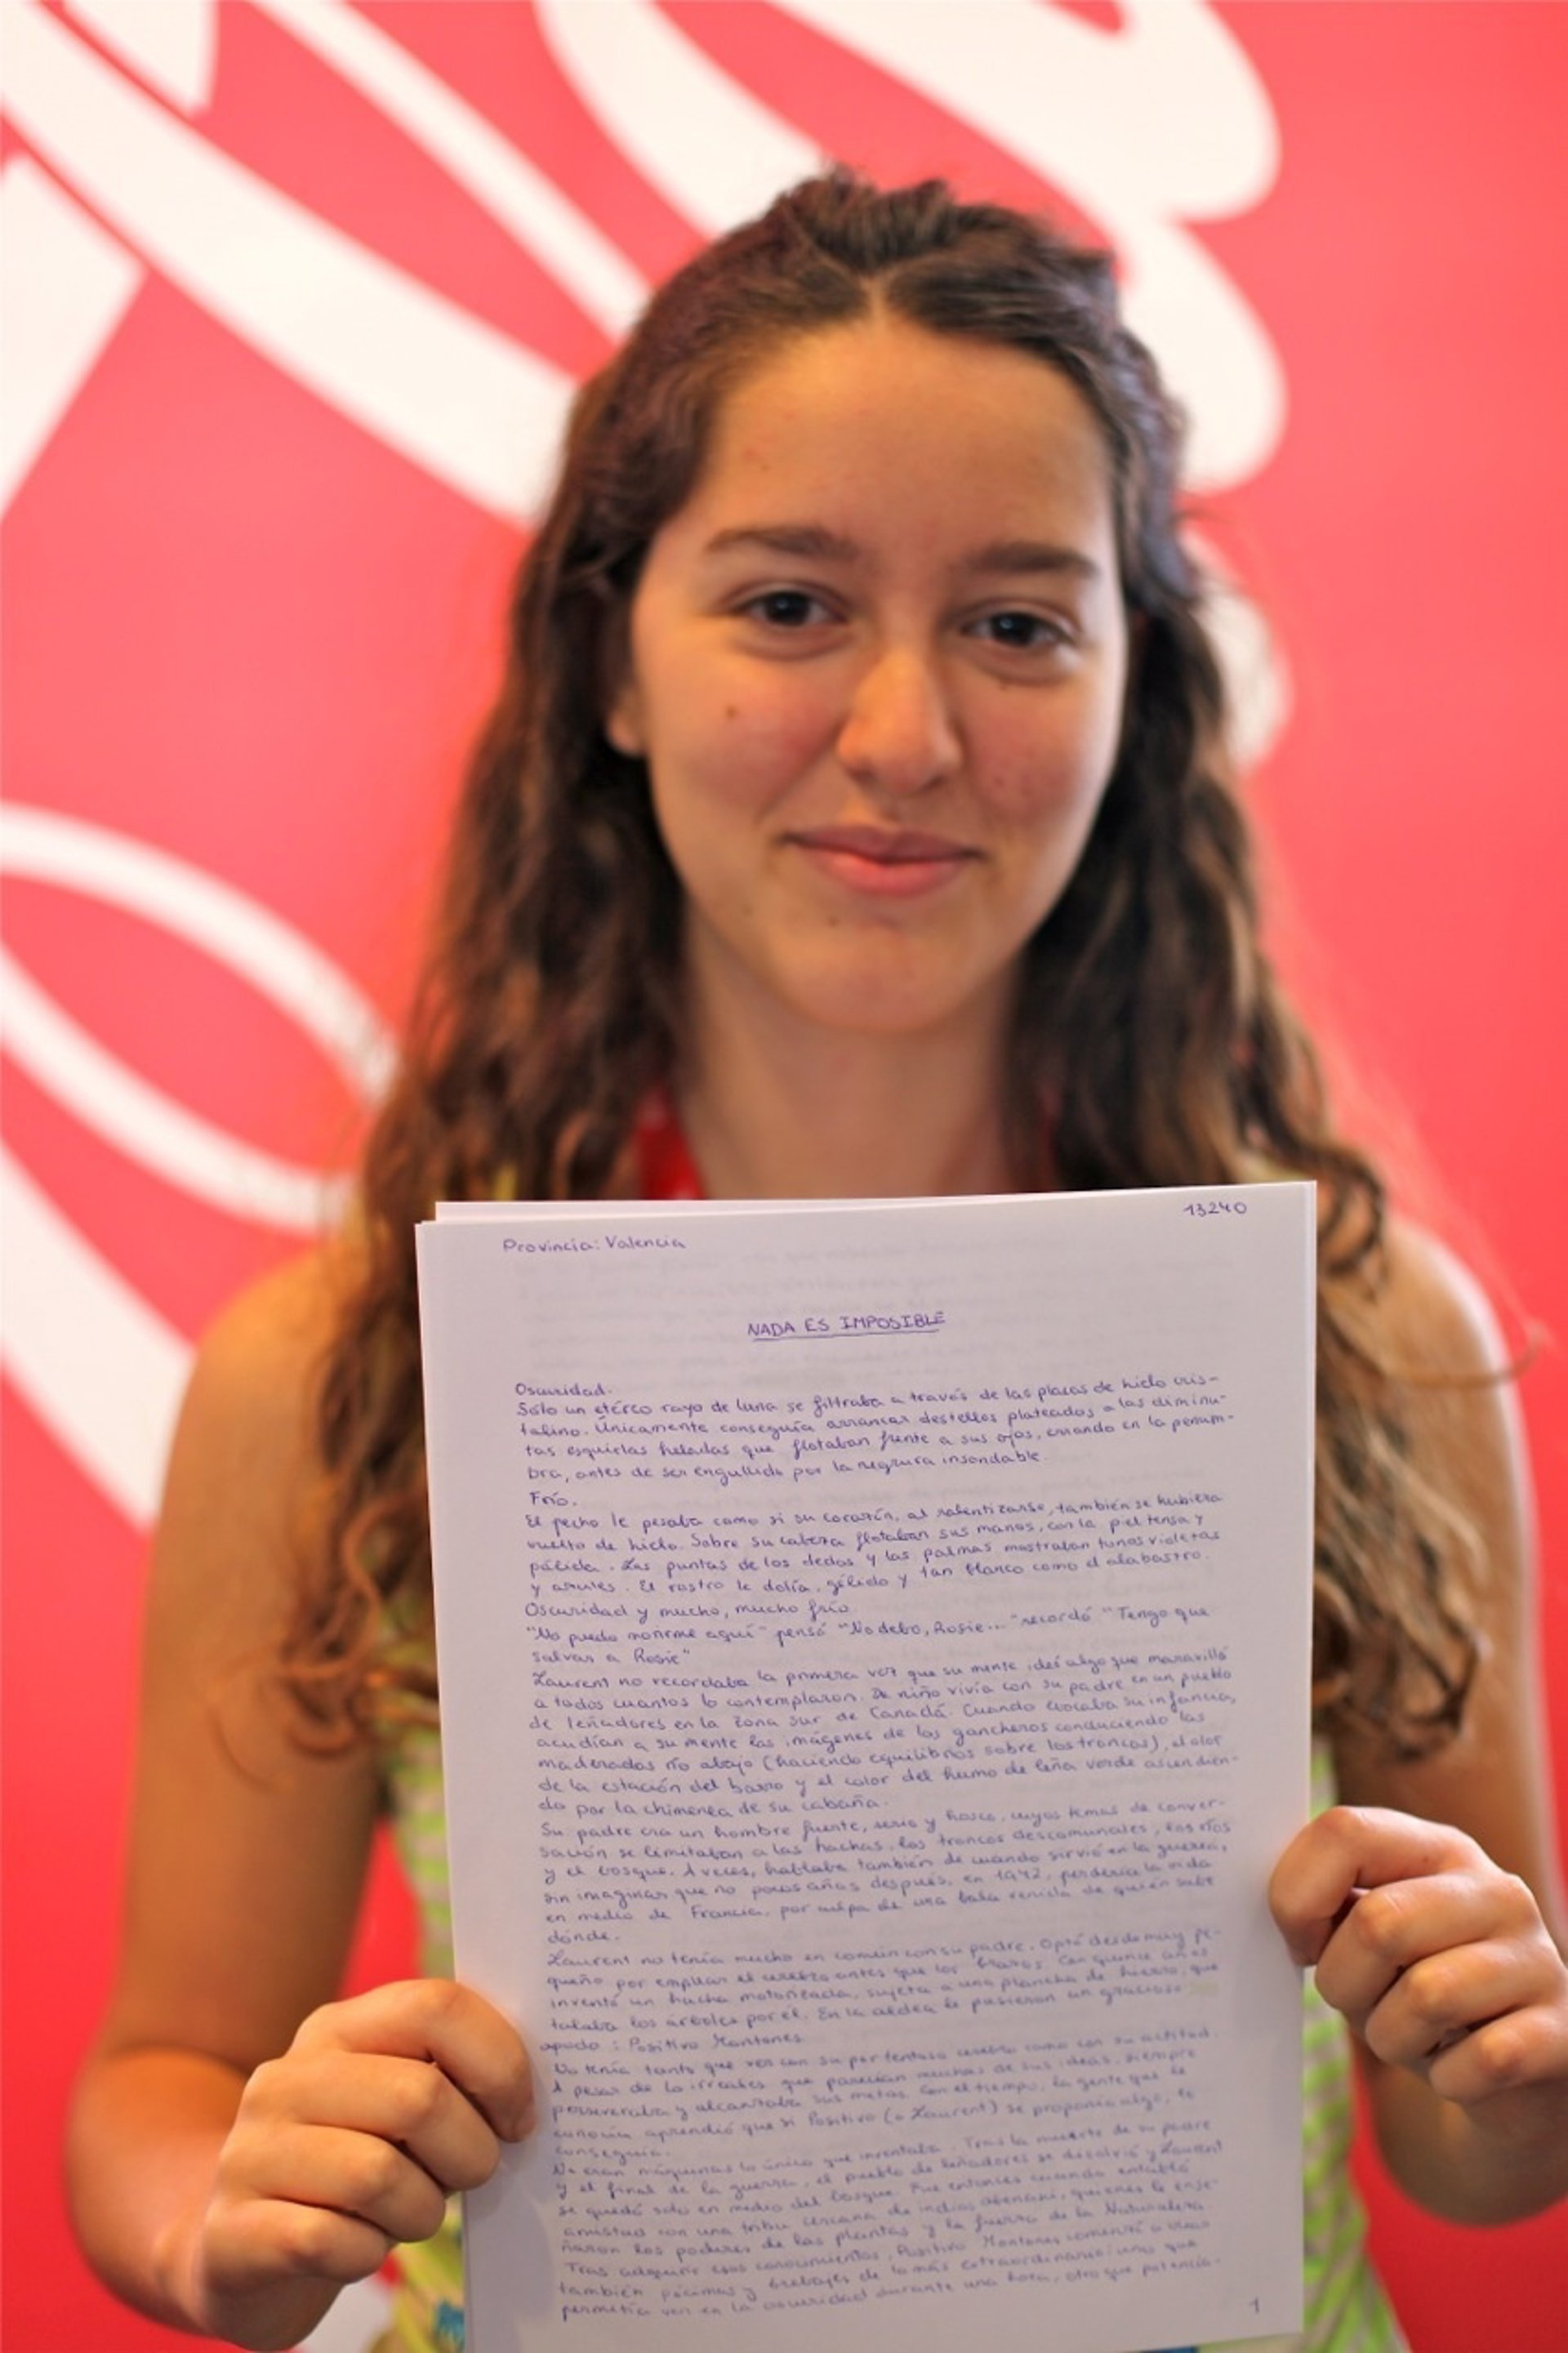 13240
Provincia: Valencia
NADA ES IMPOSIBLE
Oscuridad.
Sólo un etéreo rayo de luna se filtraba a través de las placas de hielo cris-
talino. Únicamente conseguía arrancar destellos plateados a las diminu-
tas esquirlas heladas que flotaban frente a sus ojos, errando en la penum-
bra, antes de ser engullido por la negrura insondable.
Frío.
El pecho le pesaba como si su corazón, al ralentizarse, también se hubiera
vuelto de hielo. Sobre su cabeza flotaban sus manos, con la piel tensa y
pálida. Las puntas de los dedos y las palmas mostraban tonos violetas
y azules. El rostro le dolía, gélido y tan blanco como el alabastro.
Oscuridad y mucho, mucho frío.
"No puedo morirme aquí" pensó "No debo, Rosie..." recordó "Tengo que
salvar a Rosie"
Laurent no recordaba la primera vez que su mente ideó algo que maravilló
a todos cuantos lo contemplaron. De niño vivía con su padre en un pueblo
de leñadores en la zona sur de Canadá. Cuando evocaba su infancia,
acudían a su mente las imágenes de los gancheros conduciendo las
maderadas río abajo (haciendo equilibrios sobre los troncos), el olor
de la estación del barro y el color del humo de leña verde ascendien-
do por la chimenea de su cabaña.
Su padre era un hombre fuerte, serio y hosco, cuyos temas de conver-
sación se limitaban a las hachas, los troncos descomunales, los ríos
y el bosque. A veces, hablaba también de cuando sirvió en la guerra,
sin imaginar que no pocos años después, en 1942, perdería la vida
en medio de Francia, por culpa de una bala venida de quién sabe
dónde.
Laurent no tenía mucho en común con su padre. Optó desde muy pe-
queño por emplear el cerebro antes que los brazos. Con quince años
inventó un hacha motorizada, sujeta a una plancha de hierro, que
talaba los árboles por él. En la aldea le pusieron un gracioso
apodo: Positivo Montones.
No tenía tanto que ver con su portentoso cerebro como con su actitud.
A pesar de lo irreales que parecían muchas de sus ideas, siempre
perseveraba y alcanzaba sus metas. Con el tiempo, la gente que le
conocía aprendió que si Positivo (o Laurent) se proponía algo, lo
conseguía.
No eran máquinas lo único que inventaba. Tras la muerte de su padre
y el final de la guerra, el pueblo de leñadores se disolvió y Laurent
se quedó solo en medio del bosque. Fue entonces cuando entabló
amistad con una tribu cercana de indios abenaki, quienes le ense-
ñaron los poderes de las plantas y la fuerza de la Naturaleza.
Tras adquirir esos conocimientos, Positivo Montones comenzó a crear
también pócimas y brebajes de lo más extraordinario: uno que
permitía ver en la oscuridad durante una hora, otro que potencia-
1